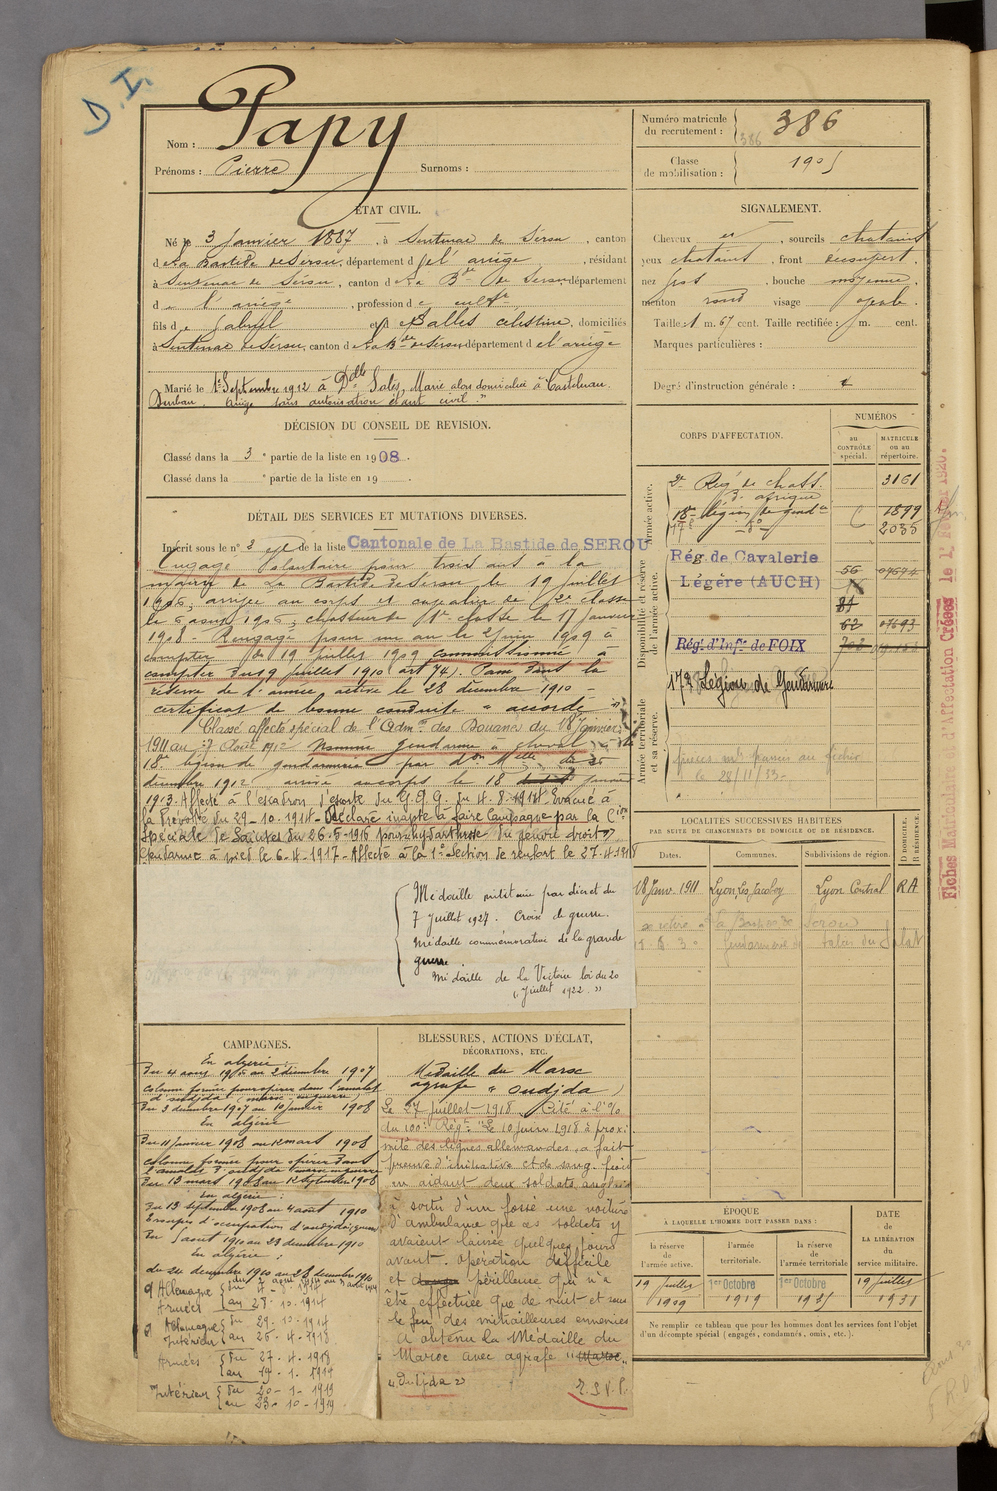 D. I.
Nom : Papy
Prénoms : Pierre Surnoms :
Numéro matricule
du recrutement : 386
386
Classe
de mobilisation : 1905
ÉTAT CIVIL.
Né le 3 Janvier 1887, à Sentenac de Sérou, canton
d La Bastide de Sérou, département d e l'ariège, résidant
à Sentenac de Sérou, canton d e La Bde de Serou département
d e l'ariège, profession d e cultr
fils d e Gabriel et d e Balles celestine, domiciliés
à Sentenac de Serou, canton d e La Bde de Serou département d e l'ariège
Marié le 1er Septembre 1912 à Dlle Salés, Marie alors domiciliée à Castelnau
Durban, Ariège sans autorisation étant civil."
SIGNALEMENT.
Cheveux et, sourcils chatains
yeux chatains, front découvert,
nez fort, bouche moyenne,
menton rond visage ovale.
Taille : 1 m. 67 cent. Taille rectifiée : m. cent.
Marques particulières :
Degré d'instruction générale :
DÉCISION DU CONSEIL DE REVISION.
Classé dans la 3e partie de la liste en 1908.
Classé dans la e partie de la liste en 19 .
DÉTAIL DES SERVICES ET MUTATIONS DIVERSES.
Inscrit sous le n° 3 de la liste Cantonale de La Bastide de SEROU
Engagé Volontaire pour trois ans à la
mairie de La Bastide de Serou, le 19 juillet
1906, arrivé au corps et cavalier de 2e classe
le 6 aout 1906, chasseur de 1re classe le 17 janvier
1908 - Rengagé pour un an le 2 juin 1909 à
compter du 19 juillet 1909 commissionné à
compter du 19 juillet 1910 (art 74). Passé dans la
réserve de l'armée active le 28 décembre 1910 -
certificat de bonne conduite "accordé"
Classé affecté spécial de l'Admon des Douanes du 18 Janvier
1911 au 27 Août 1912 Nommé gendarme à cheval
18e légion de gendarmerie par don Melle du 26
décembre 1912 arrivé au corps le 18 janvier
1913. Affecté à l'escadron d'escorte du G.Q.G. du 4.8.1914 Evacué à
la Prévôté du 29-10-1914 - Déclaré inapte à faire Campagne par la Cion
Spéciale de Saintes du 26-5-1916 pour hydarthrose du genou droit
Gendarme à pied le 6-4-1917 - Affecté à la 1e Section de renfort le 27.4.1918
Médaille militaire par décret du
7 Juillet 1927. Croix de guerre.
Médaille commémorative de la grande
guerre.
Médaille de la Victoire loi du 20
"Juillet 1922."
CORPS D'AFFECTATION.
NUMÉROS
au
CONTRÔLE
spécial.
MATRICULE
ou au
répertoire.
Armée active.
2e Régt de chass.
d'afrique 3161
18e légion de gendie 1899
17e -do- 2035
Disponibilité et réserve
de l'armée active.
Rég. de Cavalerie
Légère (AUCH)
56 07674
81
63 07693
Régt d'Infie de FOIX
Armée territoriale
et sa réserve.
17e Légion de Gendarmerie
le 28/11/33.
LOCALITÉS SUCCESSIVES HABITÉES
PAR SUITE DE CHANGEMENTS DE DOMICILE OU DE RÉSIDENCE.
Dates.
Communes.
Subdivisions de région.
D DOMICILE.
R RÉSIDENCE.
18 Janv. 1911 Lyon, Lyon Central RA
se retire à La Bastide de Serou
Gendarmerie de Salies du Salat
CAMPAGNES.
En algérie :
Du 4 aout 1906 au 2 décembre 1907
colonne formée pour opérer dans l'amalat
d'oudjda (maroc en guerre)
Du 3 décembre 1907 au 10 janvier 1908
En algérie
Du 11 janvier 1908 au 12 mars 1908
colonne formée pour opérer dans
l'amalat d'oudjda maroc en guerre
Du 13 mars 1908 au 12 septembre 1908
en algérie :
Du 13 septembre 1908 au 4 août 1910
Troupes d'occupation d'oudjda, guerre
Du 5 aout 1910 au 23 décembre 1910
En algérie :
du 24 décembre 1910 au 28 décembre 1910
Cl Allemagne
Armées { du 4-8-1914
au 28.10.1914
Cl Allemagne
Intérieur { du 29.10.1914
au 26.4.1918
Armées { du 27.4.1918
au 19.1.1919
Intérieur { du 20-1-1919
au 23-10-1919
BLESSURES, ACTIONS D'ÉCLAT,
DÉCORATIONS, ETC.
Médaille du Maroc
agrafe "oudjda"
Le 27 juillet 1918. Cité à l'o/
du 100e Régt "Le 10 juin 1918 à proxi
mité des lignes allemandes, a fait
preuve d'initiative et de sang-froid
en aidant deux soldats anglais
à sortir d'un fossé une voiture
d'ambulance que ces soldats y
avaient laissée quelques jours
avant. opération difficile
et périlleuse qui n'a
être effectuée que de nuit et sous
le feu des mitrailleuses ennemies
A obtenu la Médaille du
Maroc avec agrafe "Maroc"
"Oudjda"
T.S.V.P.
ÉPOQUE
À LAQUELLE L'HOMME DOIT PASSER DANS :
la réserve
de
l'armée active.
l'armée
territoriale.
la réserve
de
l'armée territoriale
DATE
de
LA LIBÉRATION
du
service militaire.
19 juillet
1909
1er Octobre
1919
1er Octobre
1925
19 juillet
1931
Ne remplir ce tableau que pour les hommes dont les services font l'objet
d'un décompte spécial (engagés, condamnés, omis, etc.).
Fiches Matriculaire d'Affectation Créées le 1er Février 1920.